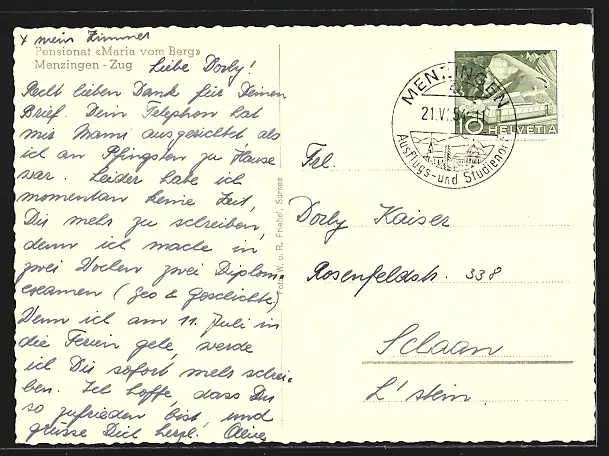 x mein Zimmer
Pensionat «Maria vom Berg»
Menzingen - Zug
Liebe Dorly!
Recht lieben Dank für Deinen
Brief. Dein Telephon hat
mir Mami ausgerichtet als
ich an Pfingsten zu Hause
war. Leider habe ich
momentan keine Zeit,
Dir mehr zu schreiben,
denn ich mache in
zwei Wochen zwei Diplom-
examen (Geo & Geschichte)
Wenn ich am 11. Juli in
die Ferien gehe, werde
ich Dir sofort mehr schrei-
ben. Ich hoffe, dass Du
so zufrieden bist und
grüsse Dich herzl.!
Foto W. u. R. Friebel, Sursee
MENZINGEN
21.V
Ausflugs- und Studienort
10 HELVETIA
Frl.
Dorly Kaiser
Rosenfeldstr. 338
Schaan
L'stein